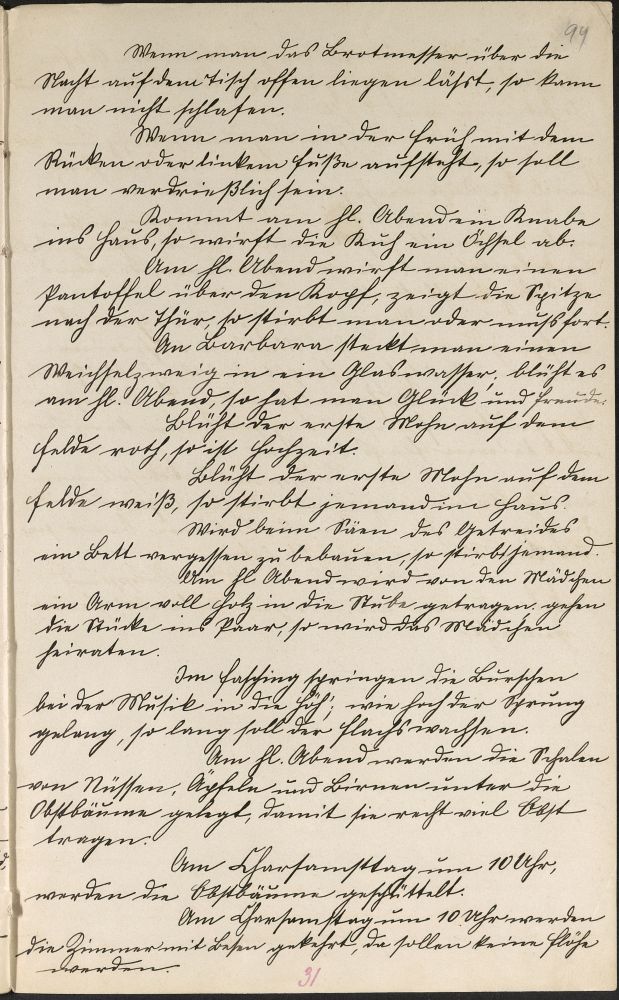 94
Wenn man das Brotmesser über die
Nacht auf dem Tisch offen liegen läßt, so kann
man nicht schlafen.
Wenn man in der Früh mit dem
Rücken oder linkem Fuße aufsteht, so soll
man verdrießlich sein.
Kommt am hl. Abend ein Knabe
ins Haus, so wirft die Kuh ein Öchsel ab.
Am hl. Abend wirft man einen
Pantoffel über den Kopf, zeigt die Spitze
nach der Thür, so stirbt man oder muß fort.
An Barbara steckt man einen
Weichselzweig in ein Glas wasser, blüht es
am hl. Abend, so hat man Glück und Freude.
Blüht der erste Mohn auf dem
Felde roth, so ist Hochzeit.
Blüht der erste Mohn auf dem
Felde weiß, so stirbt jemand im Haus.
Wird beim Säen des Getreides
ein Bett vergessen zu bebauen, so stirbt jemand.
Am hl Abend wird von den Mädchen
ein Arm voll Holz in die Stube getragen. gehen
die Stücke ins Paar, so wird das Mädchen
heiraten.
Im Fasching springen die Burschen
bei der Musik in die Höh'; wie hoch der Sprung
gelang, so lang soll der Flachs wachsen.
Am hl. Abend werden die Schalen
von Nüssen, Äpfeln und Birnen unter die
Obstbäume gelegt, damit sie recht viel Obst
tragen.
Am Charsamsttag um 10 Uhr,
werden die Obstbäume geschüttelt.
Am Charsamstag um 10 Uhr werden
die Zimmer mit Besen gekehrt, da sollen keine Flöhe
werden.
31